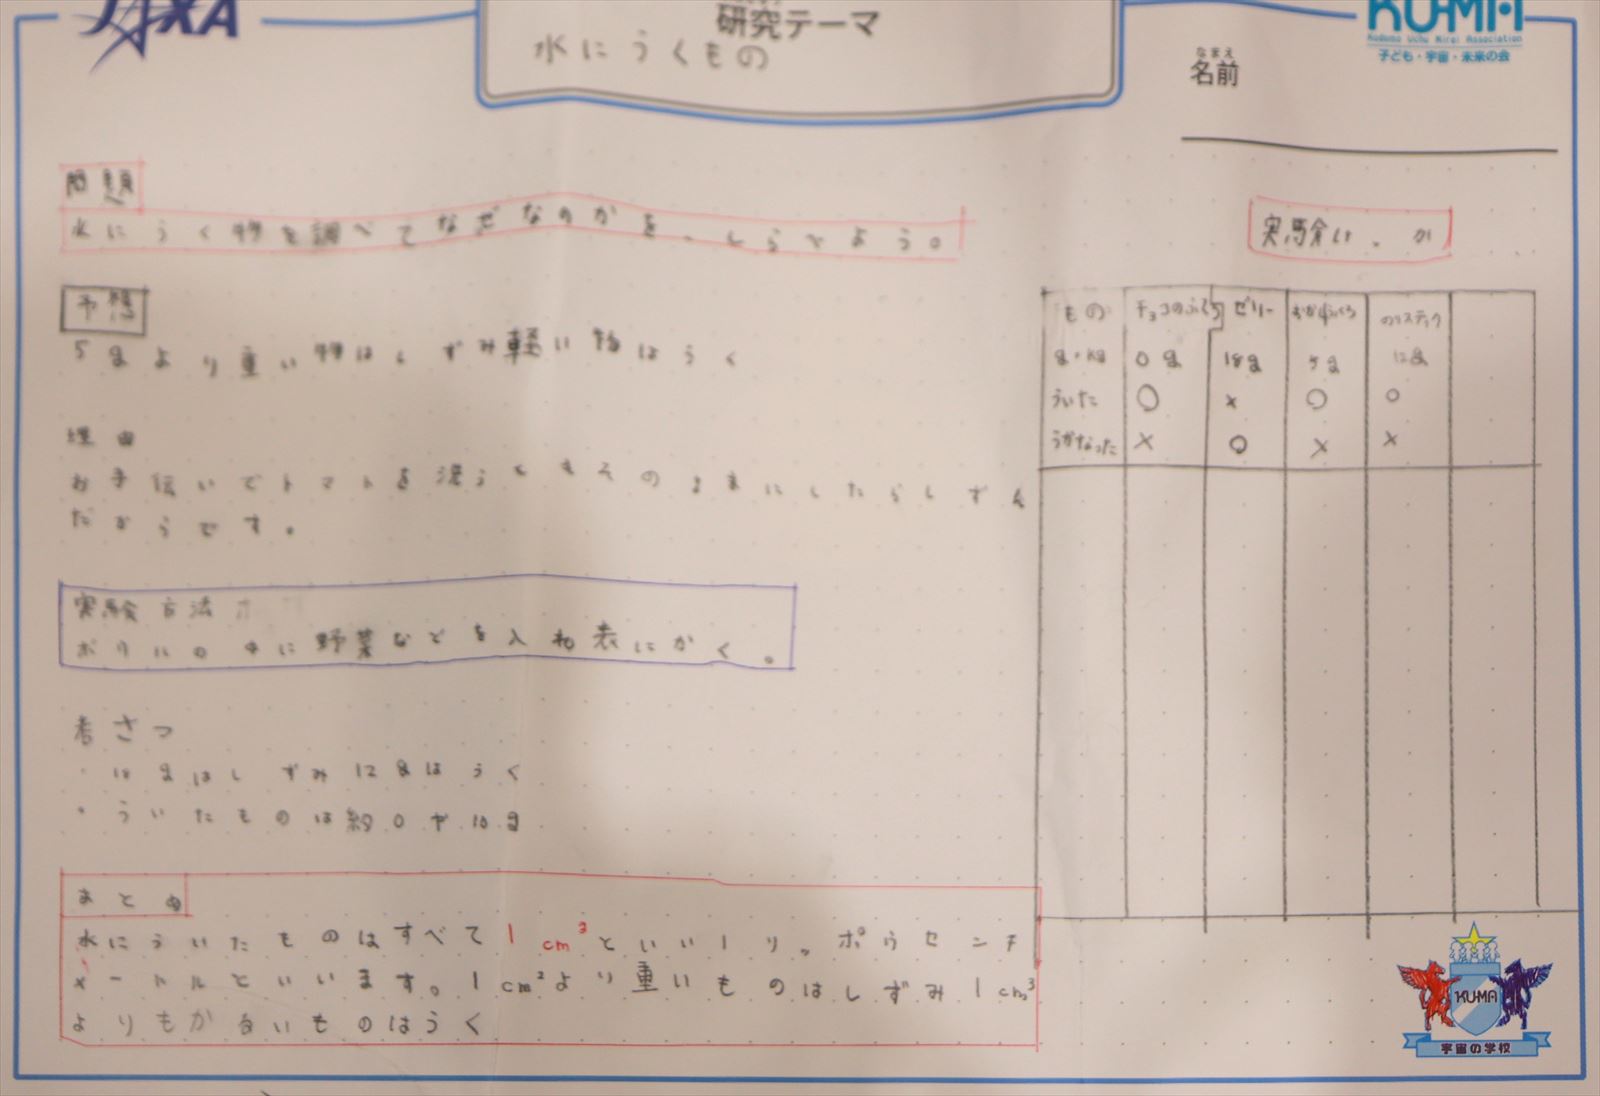 JAXA
研究テーマ
水にうくもの
KU-MA
Kodomo Uchu Mirai Association
子ども・宇宙・未来の会
なまえ
名前
問題
水にうく物を調べてなぜなのかを、しらべよう。
予想
5gより重い物はしずみ軽い物はうく
理由
お手伝いでトマトを洗うときそのままにしたらしずん
だからです。
実験方法
ボウルの中に野菜などを入れ表にかく。
考さつ
・18gはしずみ12gはうく
・ういたものは約0や10g
まとめ
水にういたものはすべて1cm³といい1り。ポウセンチ
メートルといいます。1cm²より重いものはしずみ1cm³
よりもかるいものはうく
実験けっか
もの チョコのふくろ ゼリー おかしぶくろ のりスティク
g・kg 0g 18g 5g 12g
ういた ○ × ○ ○
うかなった × ○ × ×
KUMA
宇宙の学校